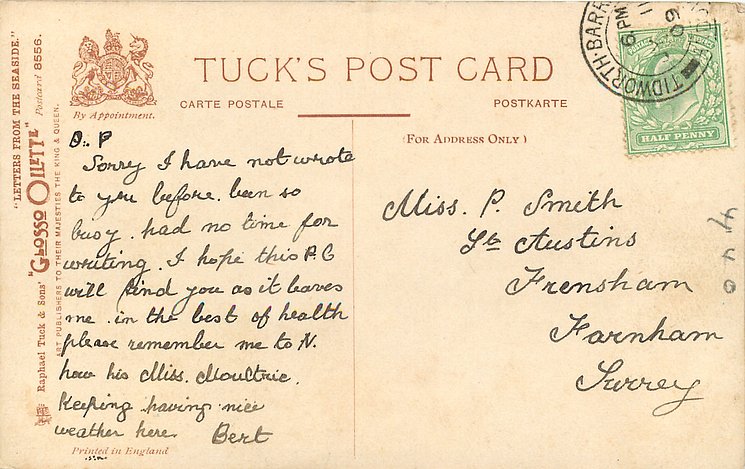 "LETTERS FROM THE SEASIDE."
Postcard 8556.
Raphael Tuck & Sons' "GLOSSO OILETTE"
ART PUBLISHERS TO THEIR MAJESTIES THE KING & QUEEN.
By Appointment.
TUCK'S POST CARD
CARTE POSTALE
POSTKARTE
(FOR ADDRESS ONLY)
D. P
Sorry I have not wrote
to you before. been so
busy. had no time for
writing. I hope this P.C
will find you as it leaves
me. in the best of health
please remember me to N.
how his Miss. Moultrie.
Keeping having nice
weather here. Bert
Printed in England
TIDWORTH·BARR
6 PM
09
HALF PENNY
Miss. P. Smith
St Austins
Frensham
Farnham
Surrey